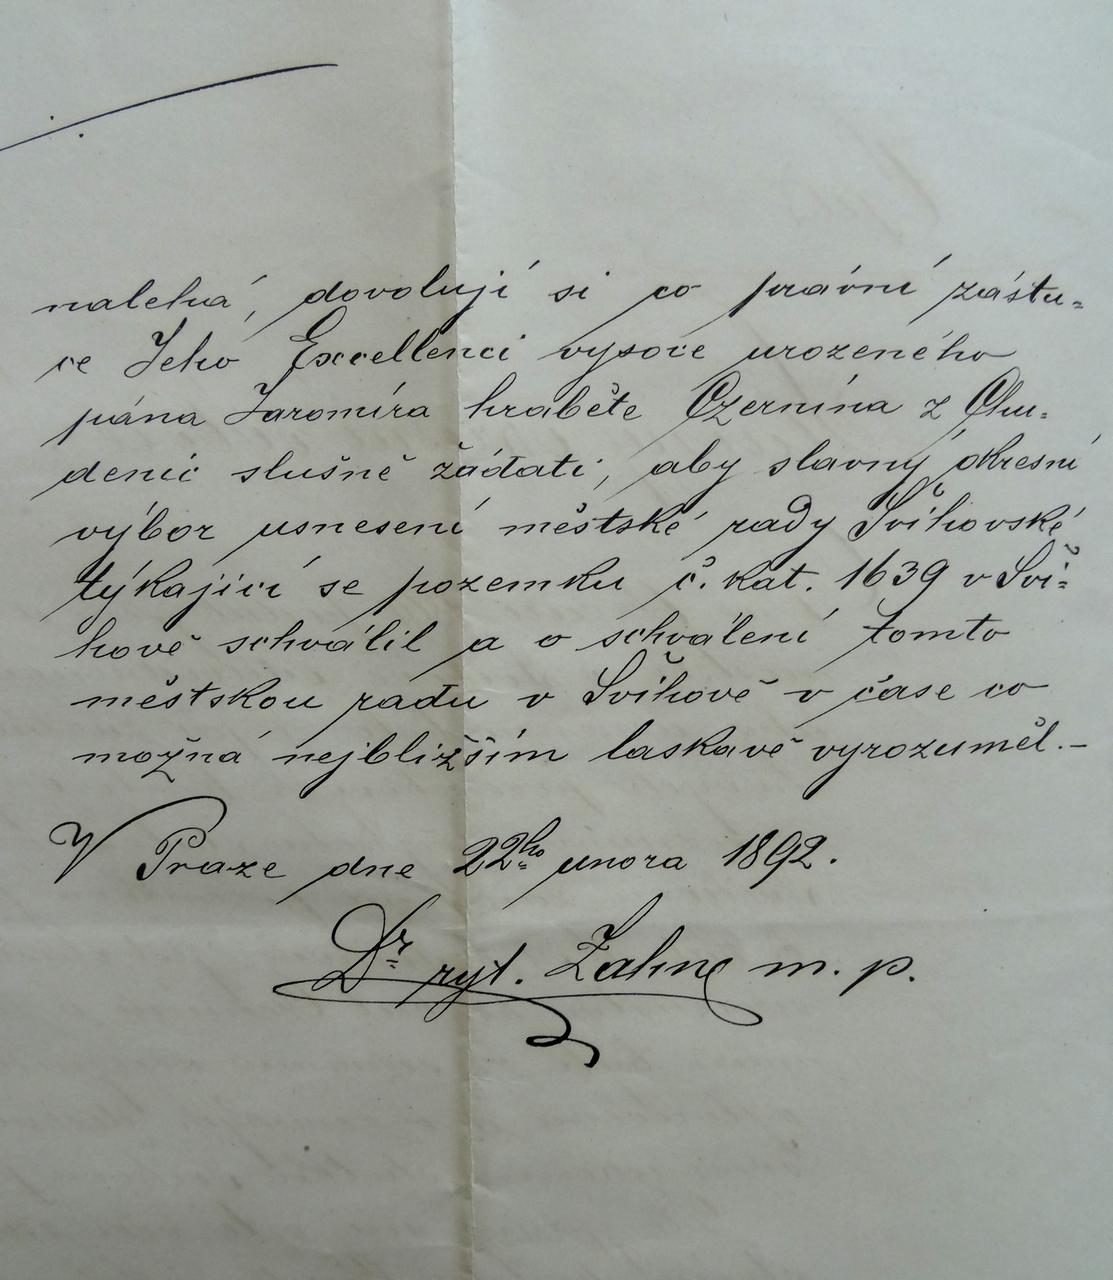 nalehá, dovoluji si co právní zástu=
ce Jeho Excellenci vysoce urozeného
pána Jaromíra hraběte Czernína z Chu=
denic slušně žádati, aby slavný okresní
výbor usnesení městské rady Švihovské
týkající se pozemku č. kat. 1639 v Švi=
hově schválil a o schválení tomto
městskou radu v Švihově v čase co
možná nejbližším laskavě vyrozuměl.–
V Praze dne 22ho února 1892.
Dr ryt. Zahn m. p.